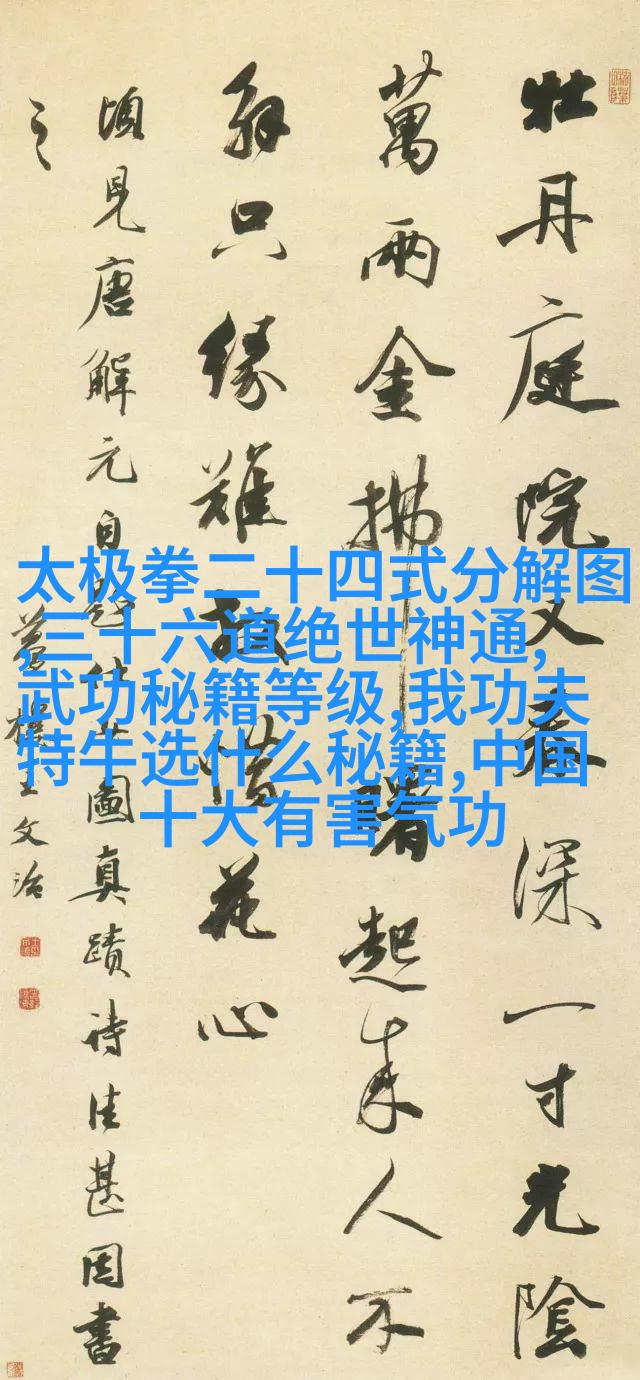 太极拳二十四式分解图
,三十六道绝世神通,
武功秘籍等级,我功夫
特牛选什么秘籍,中国
十大有害气功
牡丹庭院又春深一寸光陰
萬兩金拂曙起來人不
解只緣難放惜花心
頃見唐解元自題仕女圖真蹟詩佳甚因書
之
夢樓王文治